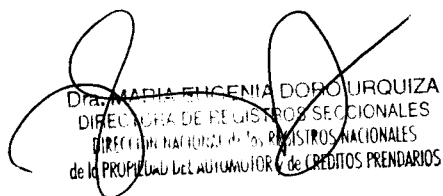 Dra. MARIA EUGENIA DORO URQUIZA
DIRECTORA DE REGISTROS SECCIONALES
DIRECCION NACIONAL de los REGISTROS NACIONALES
de la PROPIEDAD DEL AUTOMOTOR y de CREDITOS PRENDARIOS